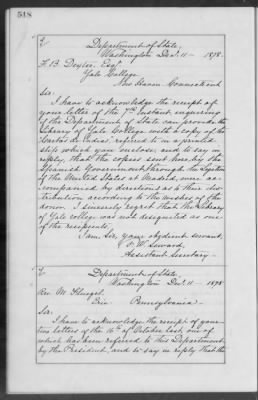 518
Department of State,
Washington Dec. 11 - 1878.
F. B. Dexter, Esqr.
Yale College
New Haven Connecticut
Sir:
I have to acknowledge the receipt of
your letter of the 7th instant, inquiring
if the Department of State can provide the
Library of Yale College with a copy of the
"Cartas de Indias" referred to in a printed
slip which you enclose, and to say in
reply, that the copies sent here by the
Spanish Government through the Legation
of the United States at Madrid, were ac-
companied by directions as to their dis-
tribution according to the wishes of the
donor. I sincerely regret that the Library
of Yale College was not designated as one
of the recipients.
I am, Sir, your obedient servant,
F. W. Seward,
Assistant Secretary.
Department of State,
Washington Dec. 11 - 1878
Rev. M.
Erie Pennsylvania.
Sir:
I have to acknowledge the receipt of your
two letters of the 16th of October last, one of
which has been referred to this Department
by the President, and to say in reply that the